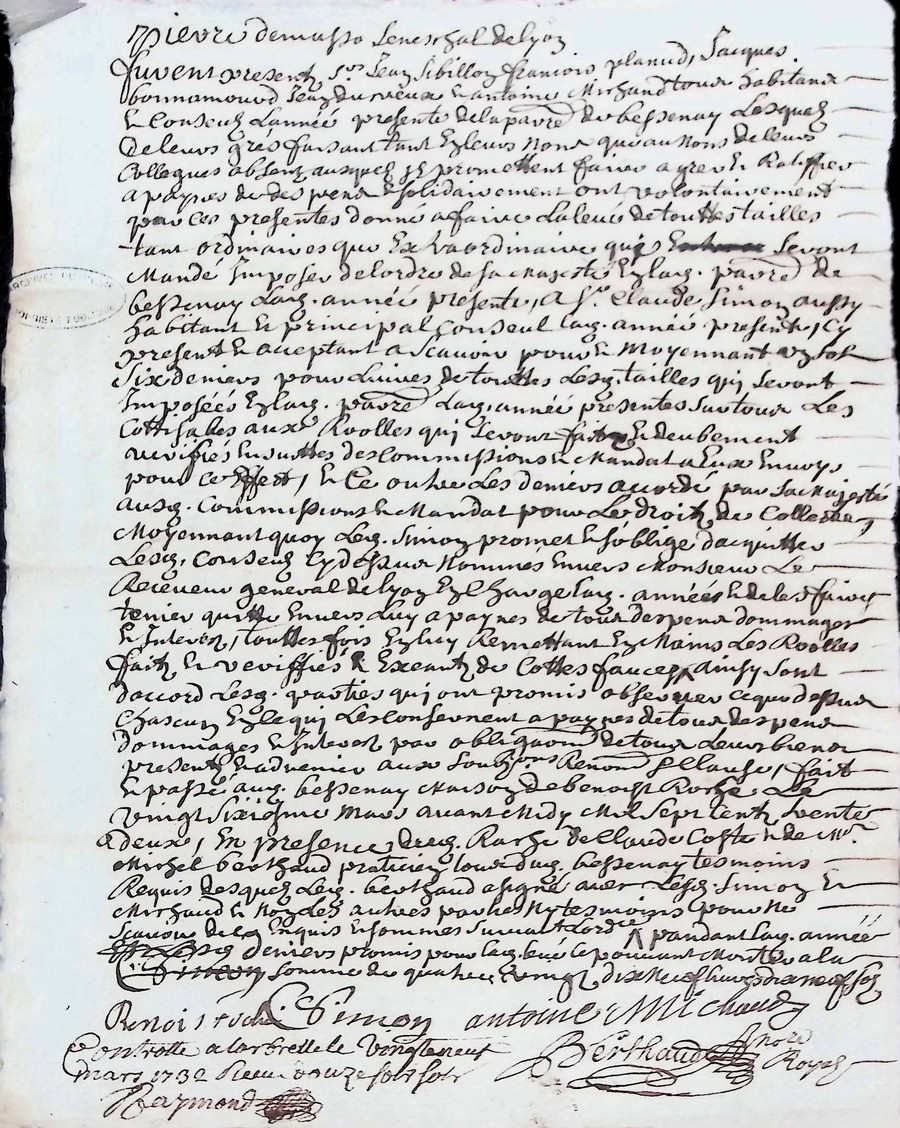 Pierre demasso Seneschal de lyon
furent presentz, Sr Jean Sibillon, francois planud, Jacques
bonnamourd Jean du vieux & antoine Michaud tous habitans
& Conseulz Lannée presente de la parre de bessenay Lesquelz
de leurs grés faisant tant en leurs noms que au Nons de leurs
Collegues absentz ausquelz jls promettent faire agreer & Ratiffier
a paynes de despens & solidairement ont volontairement
par ces presentes donné a faire La levé de touttes tailles
tant ordinaires que Extraordinaire quj Seront
Mandé Imposés de lordre de sa Majesté En lad. parre de
bessenay Lad. année presente, A Sr. Claude Simon aussy
habitant & principal Conseul lad. année presente, Cy
present & acceptant a Scavoir pour & Moyennant un sol
Six deniers pour Livres de touttes Lesd. tailles quj Seront
Imposéés En lad. parre Lad. année presentes sur tous Les
Cottisables aux Roolles quj Seront faits & deubement
veriffiés Ensuittes des Commissions & Mandat a Eux Envoyé
pour cet effect, & Ce outre Les deniers acordé par sa Majesté
ausd. Commissions & Mandat pour Le droit de Collecte,
Moyennant quoy Led. Simon promet & soblige dacquitter
Lesd. Conseulz Cy dessus Nommés Envers Monsieur Le
Receveur general de lyon En Charge lad. année & de les faire
tenir quitte Envers Luy a paynes de tous despens dommages
& Interest, touttes fois En luy Remettant En Mains Les Roolles
faitz & veriffiés & Exeantz de Cottes fauces, Ainsy sont
daccord Lesd. parties quj ont promis observer ce que dessus
Chascun En le quj Les Conservent a paynes de tous despens
dommages & Interest par obligaon de tous Leurs biens
presentz & advenir aux Soubzmons Renons & Clause, fait
& passé aud. bessenay Maison de benoist Roche Le
vingt Sixiesme Mars avant Midy Mil Sept Centz trente
deux, En presence dud. Roche de Claude Coste & de Mr.
Michel berthaud praticien tous dud. bessenay tesmoins
Requis Desquelz Led. berthaud a signé avec Lesd. Simon &
Michaud & Non Les autres parties Ny tesmoins pour ne
Scavoir de ce Enquis & sommés suivant Lordce pandant lad. année
deniers promis pour lad. levé se pouvant Monter a la
Somme de quatre vingt dix Neuf livres dix neuf sols
Benoist Roche C Simon antoine Michaud
Controlle a larbresle le vingt neuf Berthaud Nore Royal
mars 1732 Receu douze sols
Raymond